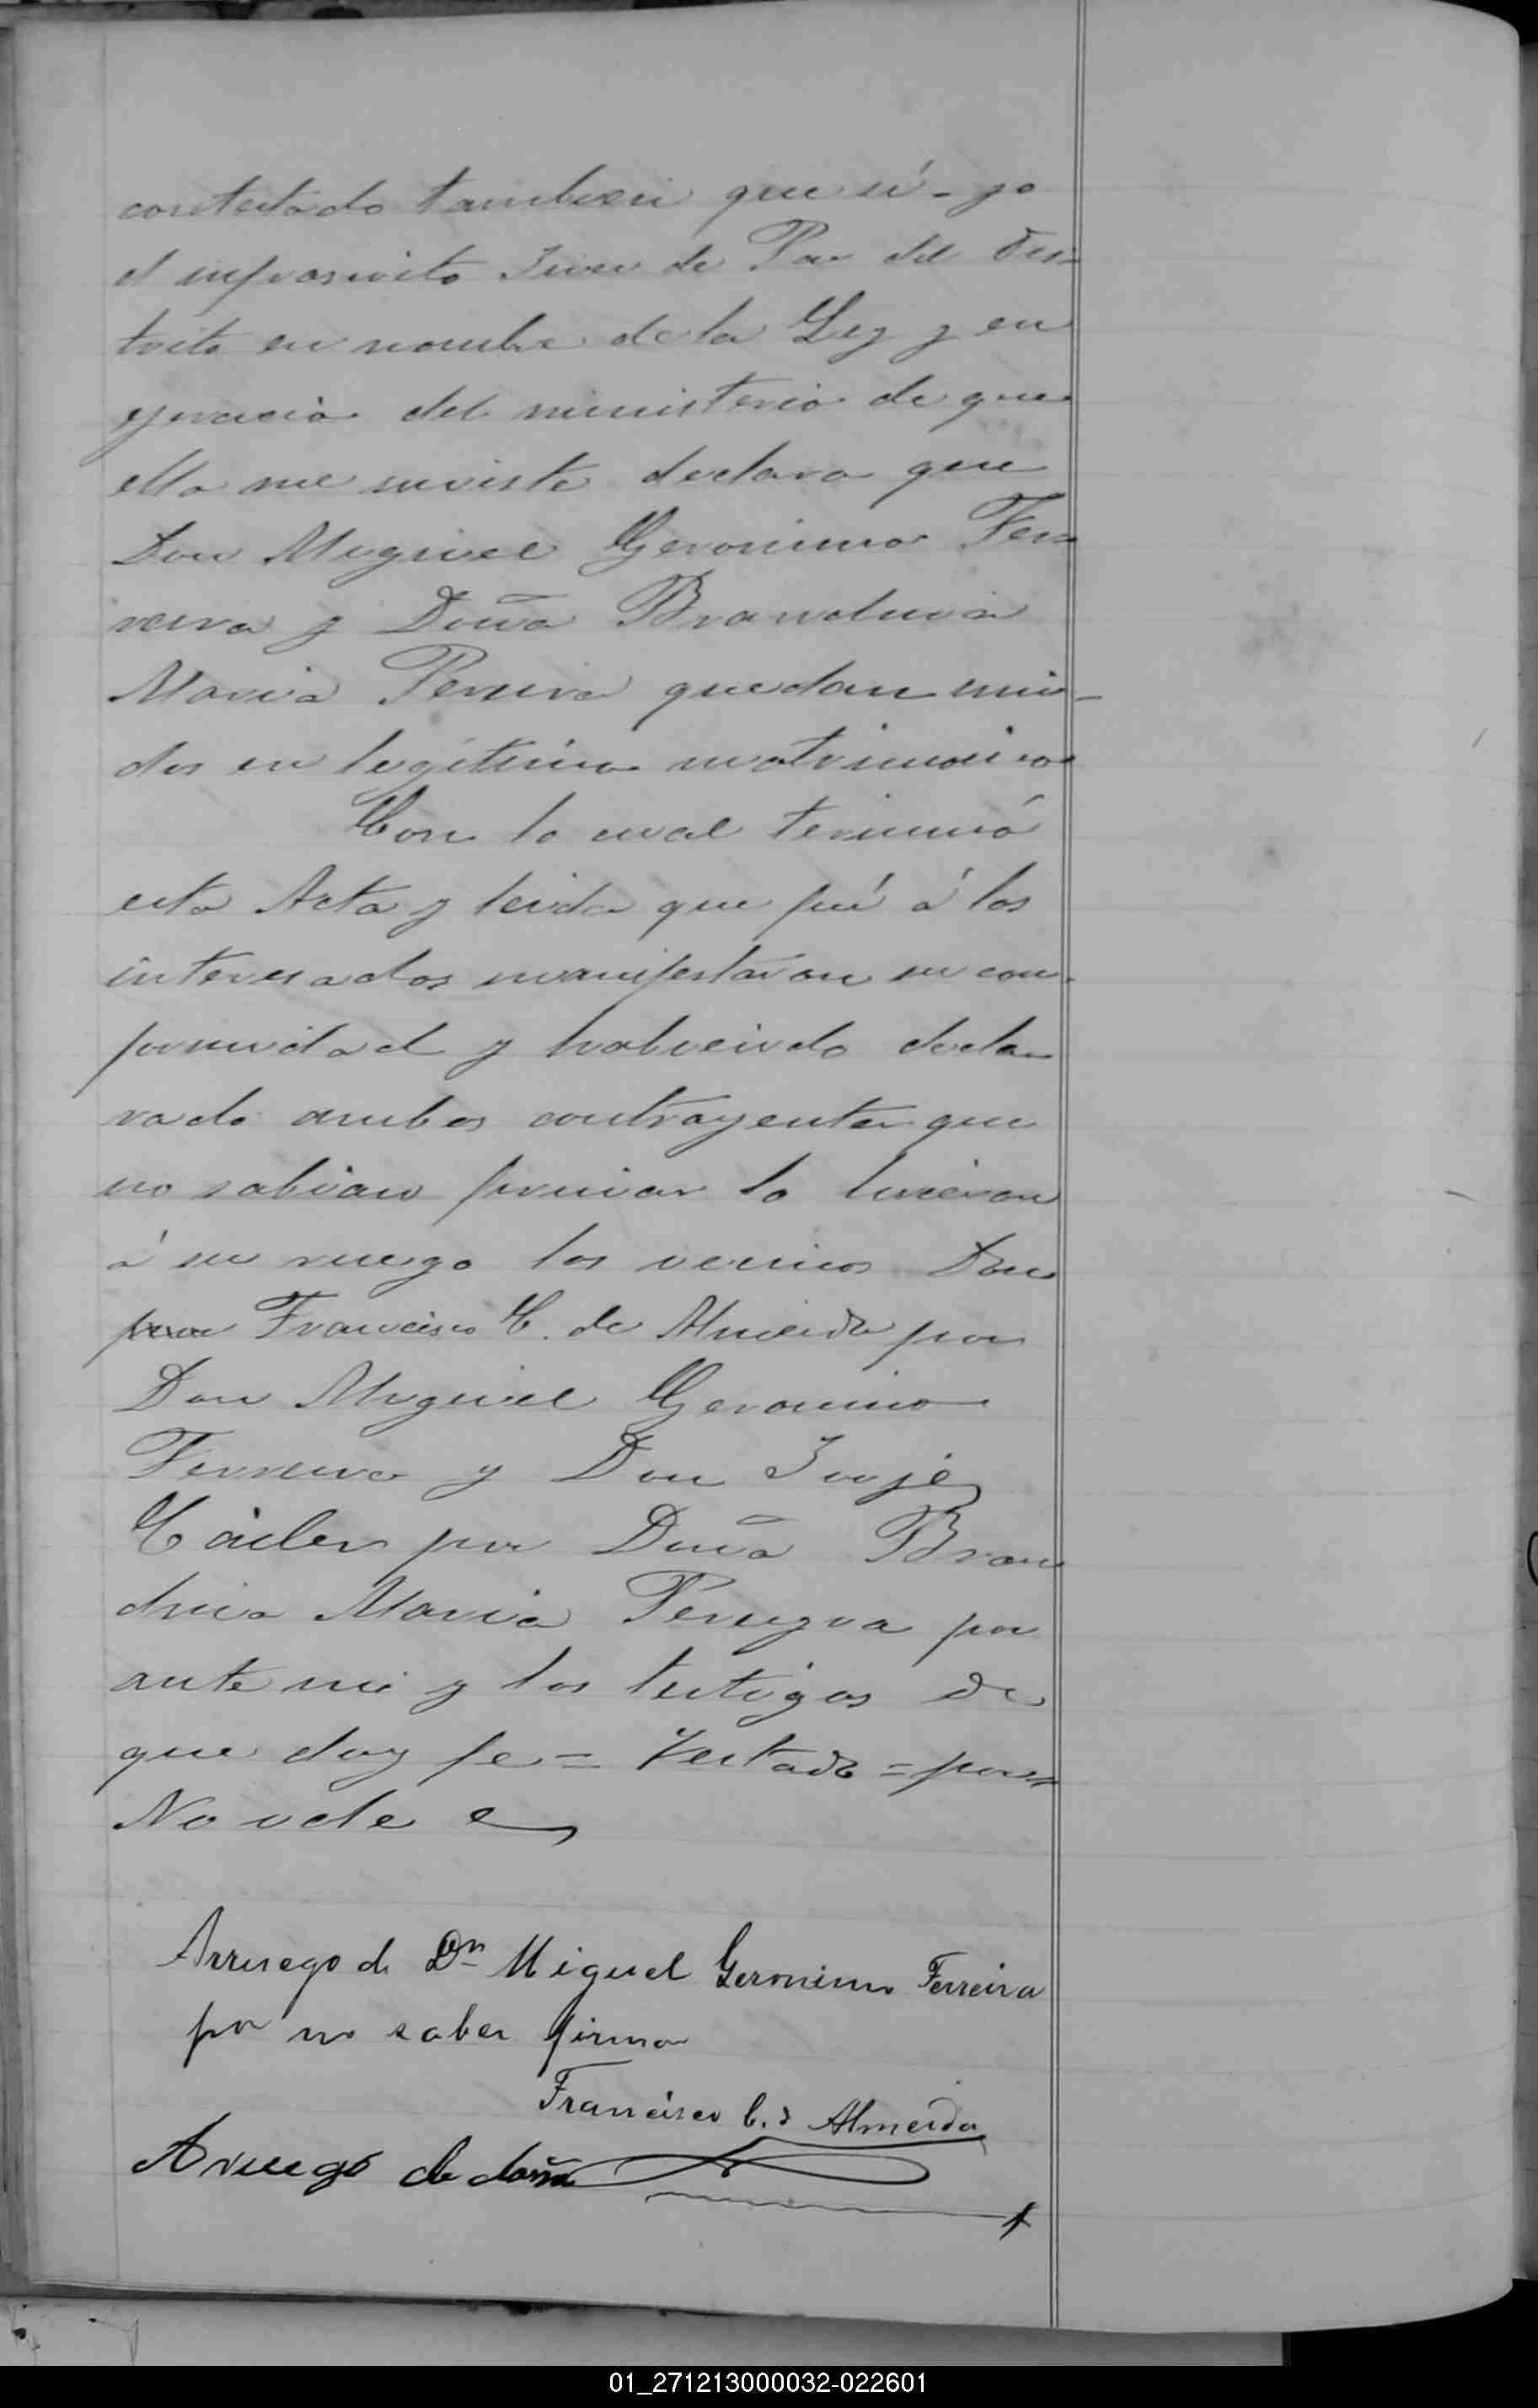 contestado tambien que si - yo
el infrascrito Juez de Paz del Dis-
trito en nombre de la Ley y en
ejercicio del ministerio de que
ella me inviste declaro que
Don Miguel Geronimo Fer-
reira y Doña Brandina
Maria Pereira quedan uni-
dos en legítimo matrimonio
Con lo cual terminó
esta Acta y leida que fué á los
interesados manifestaron su con-
formidad y habiendo decla-
rado ambos contrayentes que
no sabian firmar lo hicieron
á su ruego los vecinos Don
por Francisco C. de Almeida por
Don Miguel Geronimo
Ferreira y Don Jorje
por Doña Bran
dina Maria Pereyra por
ante mi y los testigos de
que doy fe = Testado = por =
No vale
Arruego de Dn Miguel Geronimo Ferreira
por no saber firmar
Francisco C. d Almeida
A ruego de doña
01_271213000032-022601